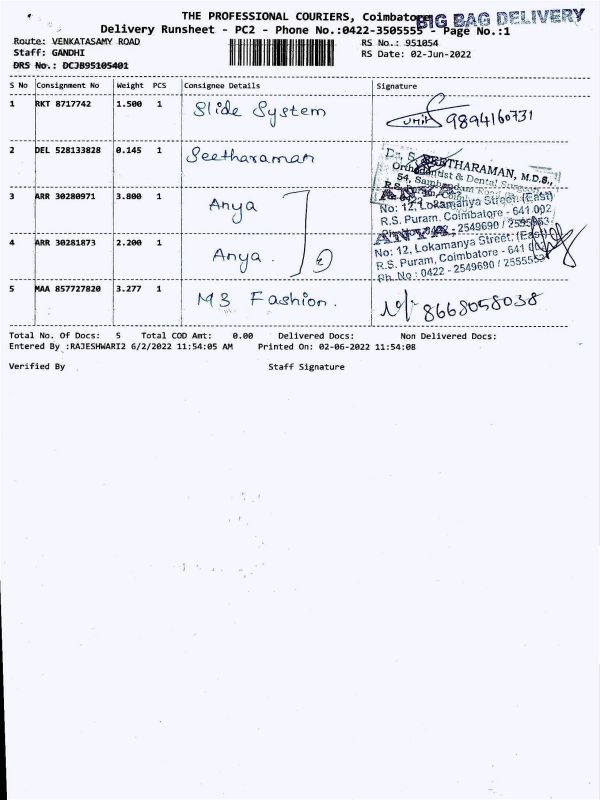 THE PROFESSIONAL COURIERS, Coimbatore
BIG BAG DELIVERY
Delivery Runsheet - PC2 - Phone No.:0422-3505555 - Page No.:1
Route: VENKATASAMY ROAD RS No.: 951054
Staff: GANDHI RS Date: 02-Jun-2022
DRS No.: DCJB95105401
S No Consignment No Weight PCS Consignee Details Signature
1 RKT 8717742 1.500 1 Slide System 9894160731
2 DEL 528133828 0.145 1 Seetharaman
Dr. S. SEETHARAMAN, M.D.S.,
Orthodontist & Dental Surgeon
54,
R.S.
3 ARR 30280971 3.800 1 Anya
No: 12, Lokamanya Street: (East)
R.S. Puram, Coimbatore - 641 002
2549690 / 2555553
4 ARR 30281873 2.200 1 Anya. 2
ANYA,
No: 12, Lokamanya Street: (East)
R.S. Puram, Coimbatore - 641 002
Ph. No : 0422 - 2549690 / 2555553
5 MAA 857727820 3.277 1 M3 Fashion. 8668058038
Total No. Of Docs: 5 Total COD Amt: 0.00 Delivered Docs: Non Delivered Docs:
Entered By :RAJESHWARI2 6/2/2022 11:54:05 AM Printed On: 02-06-2022 11:54:08
Verified By Staff Signature